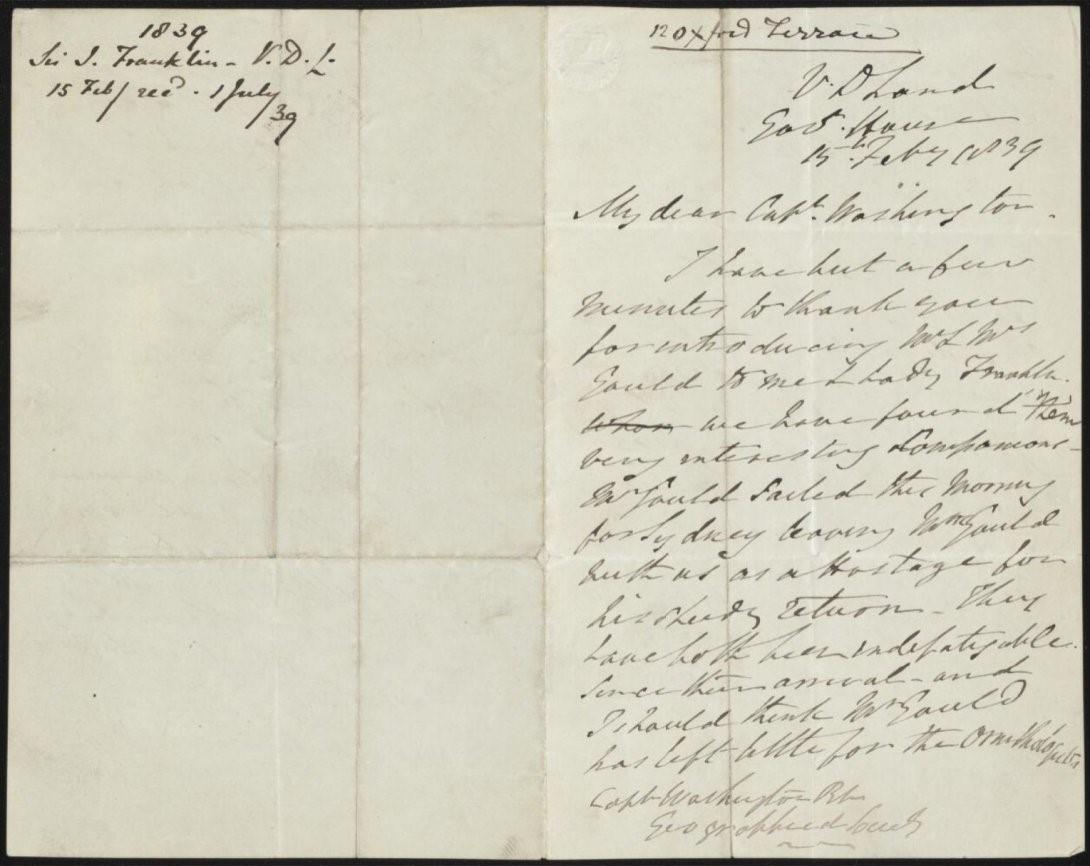 1839
Sir J. Franklin - V. D. L.
15 Feb/ recd. 1 July
/39
12 Oxford Terrace
V. D Land
Govt. House
15th Feby 1839
My dear Captn. Washington.
I have but a few
minutes to thank you
for introducing Mr & Mrs
Gould to me & Lady Franklin.
whom we have found them
very interesting Companions -
Mr Gould sailed this Morning
for Sydney leaving Mrs Gould
with us as a Hostage for
his speedy return - They
have both been indefatigable
since their arrival - and
I should think Mr Gould
has left little for the Ornithologists
Captn Washington RN
Geographical Society